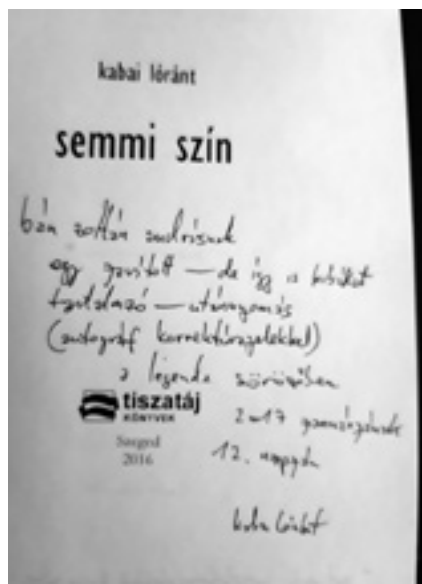 kabai lóránt
semmi szín
bán zoltán andrásnak
egy javított — de így is hibákat
tartalmazó — utánnyomás
(autográf korrektúrajelekkel)
a legenda sörözőben
tiszatáj
KÖNYVEK
Szeged
2016
2017
12. napján